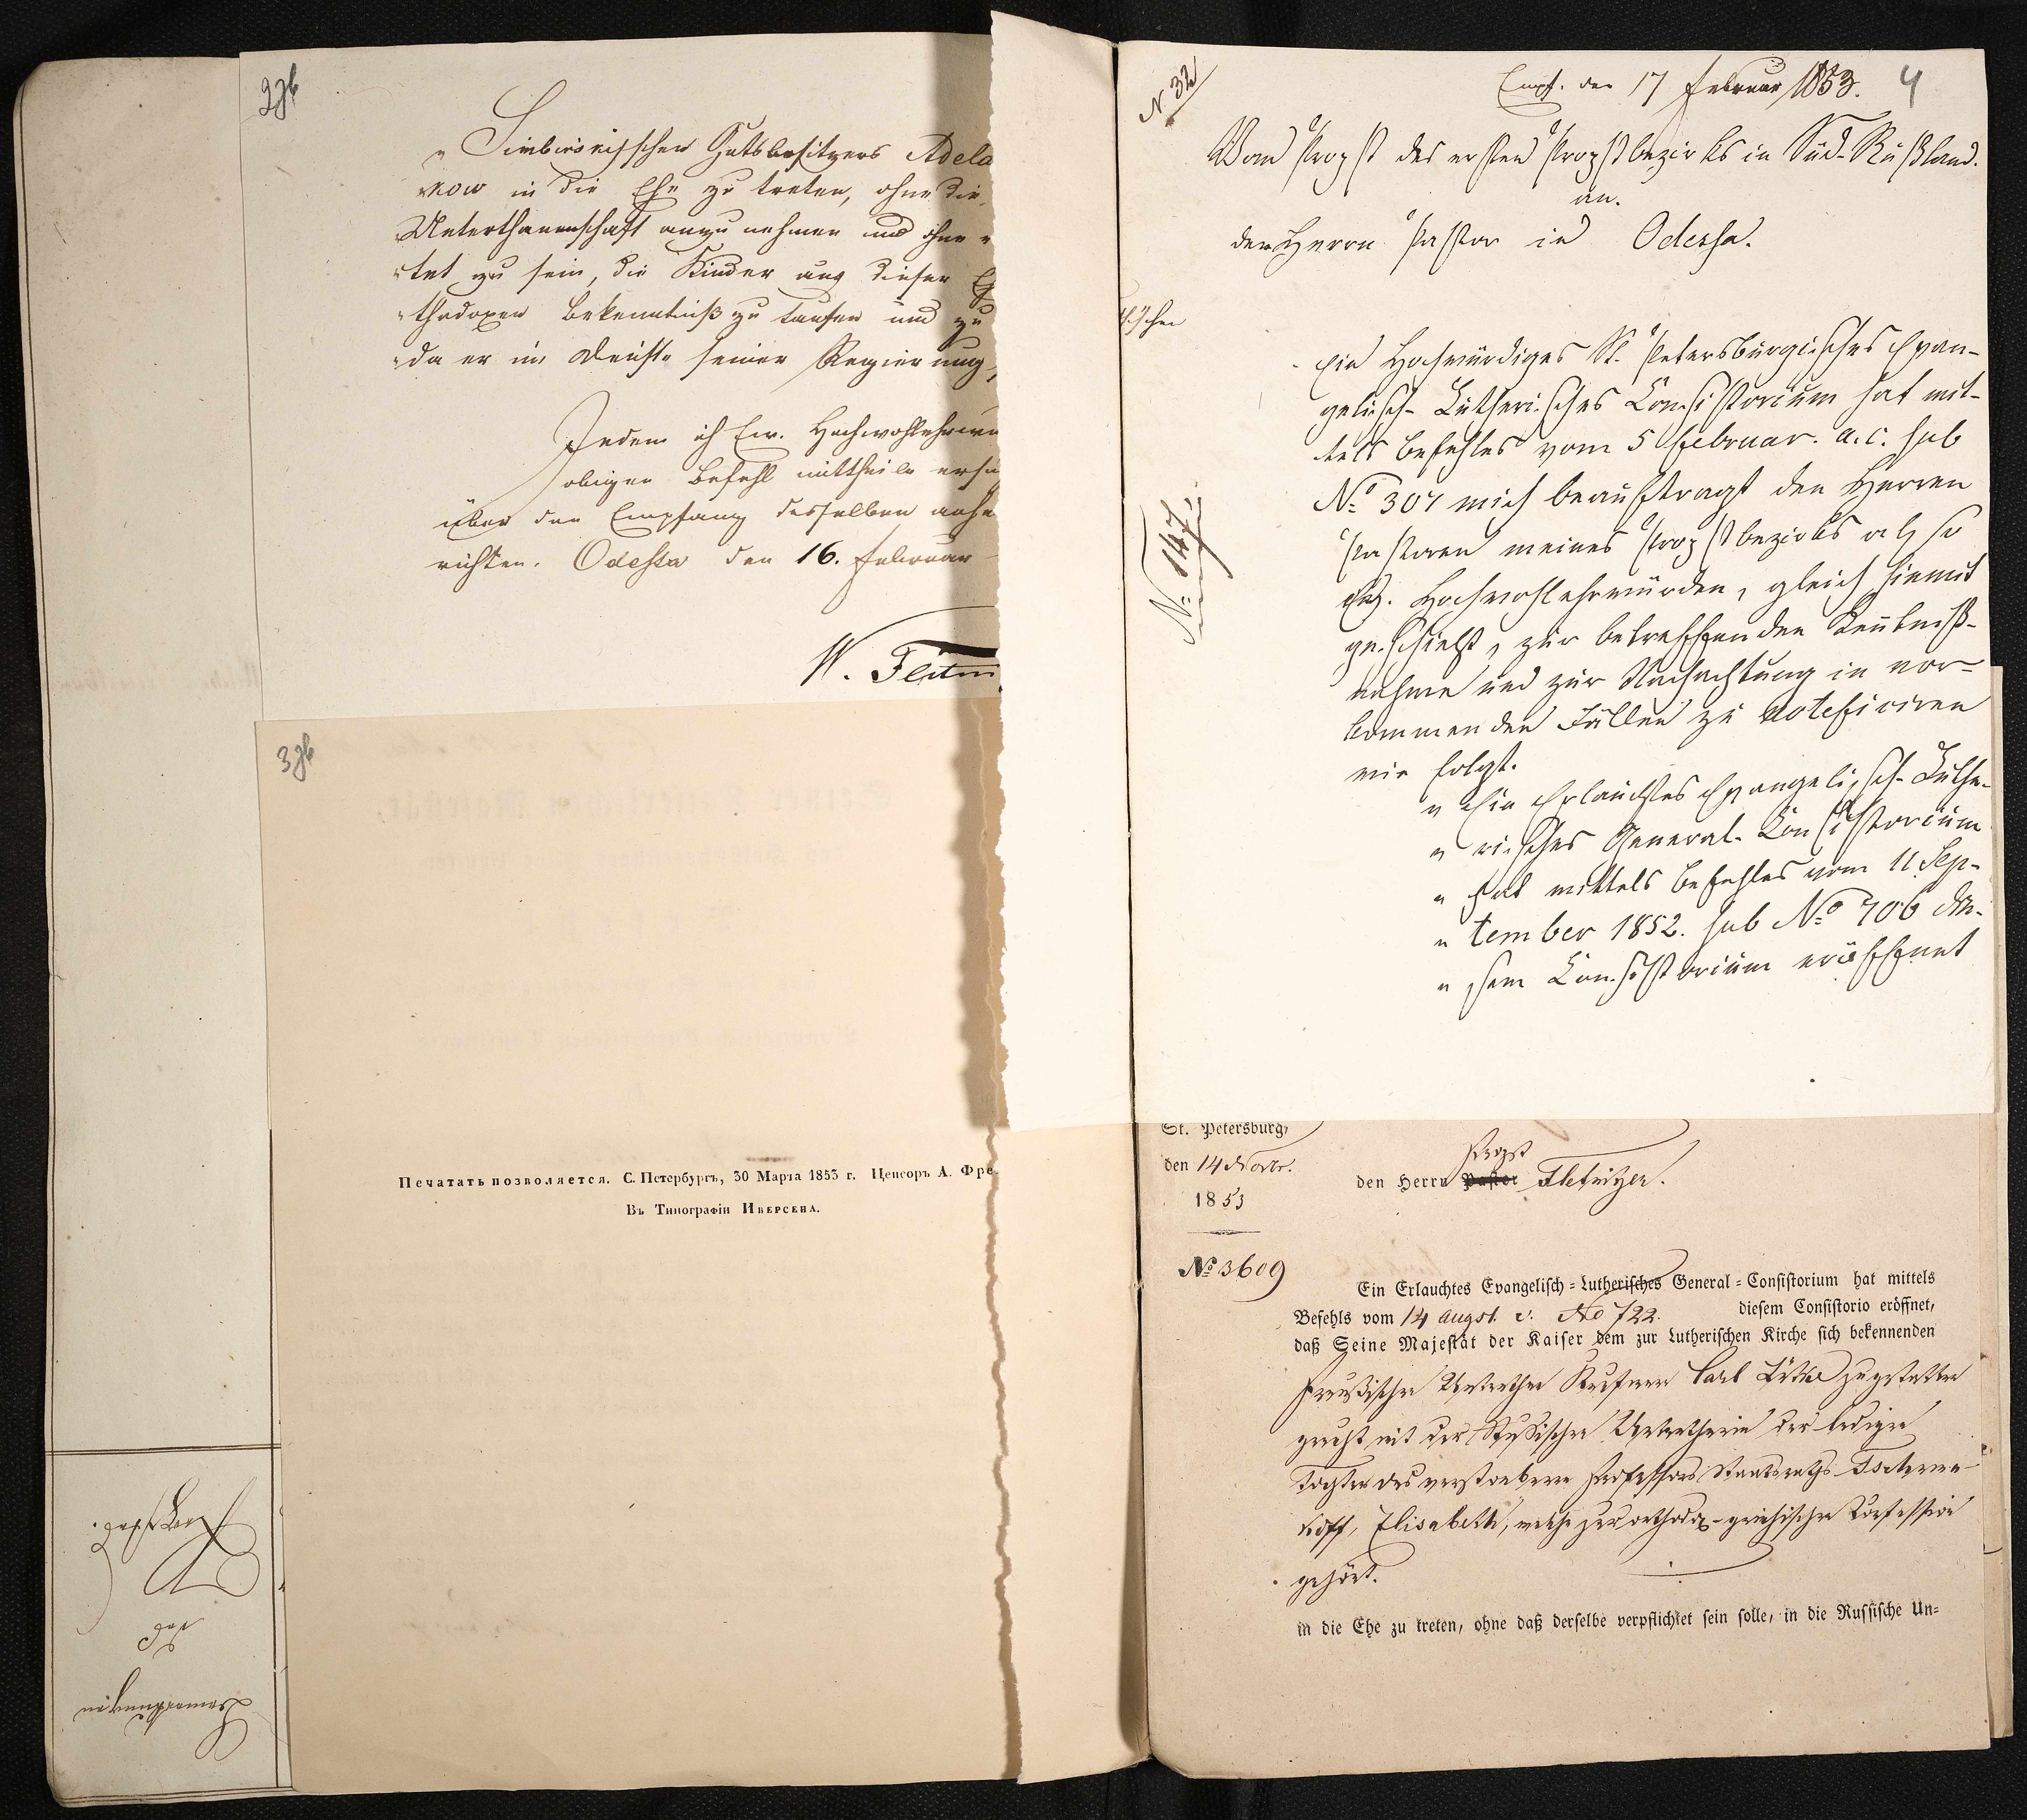 2об
„ Simbirskischen Gutsbesitzers Adela
„kow in die Ehe zu treten, ohne die
„Unterthanenschaft anzunehmen und ohne
„tet zu sein, die Kinder aus dieser Eh
„thodoxen Bekenntniß zu taufen und zu
„da er im Dienste seiner Regierung,
Indem ich Ew. Hochwohlehrwü
obigen Befehl mittheile ersu
über den Empfang desselben
richten. Odessa den 16. Februar
W. Flitn
3об
Печатать позволяется. С. Петербургъ, 30 Марта 1853 г. Ценсоръ А. Фре
Въ Типографіи Иверсена.
N 32
Empf. den 17 Februar 1853. 4
Vom Propst des ersten Propstbezirks in Süd-Rußland.
an.
den Herrn Pastor in Odessa.
Ein Hochwürdiges St. Petersburgisches Evan-
gelisch-Lutherisches Consistorium hat mit-
tels Befehles vom 5 Februar. a.c. sub
№ 307 mich beauftragt den Herren
Pastoren meines Propstbezirks also
Ew. Hochwohlehrwürden, gleich hiemit
geschieht, zur betreffenden Kenntniß-
nahme und zur Nachachtung in vor-
kommenden Fällen zu notificiren
wie folgt.
№ 147.
„ Ein Erlauchtes Evangelisch-Luthe-
„ risches General-Consistorium
„ hat mittels Befehles vom 11 Sep-
„ tember 1852. sub № 706 die-
„ sem Consistorium eröffnet
St. Petersburg,
den 14 Novbr.
1853
№ 3609
Propst
den Herrn Pastor Fletnitzer.
Ein Erlauchtes Evangelisch-Lutherisches General-Consistorium hat mittels
Befehls vom 14 Augst. c. No 722. diesem Consistorio eröffnet,
daß Seine Majestät der Kaiser dem zur Lutherischen Kirche sich bekennenden
Preußischen Unterthan Kaufmann Carl Lütke zu gestatten
geruht mit der Russischen Unterthanin der ledigen
Tochter des verstorbenen Professors Staatsraths Tscheren-
koff, Elisabeth, welche zur orthodox-griechischen Confession
gehört.
in die Ehe zu treten, ohne daß derselbe verpflichtet sein solle, in die Russische Un-